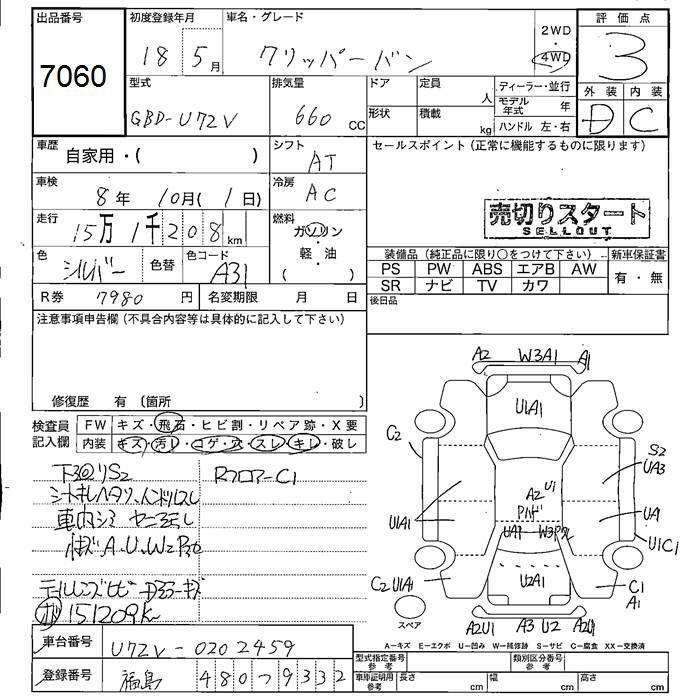 出品番号
7060
初度登録年月
18 5月
車名・グレード
クリッパーバン
2WD
4WD
評価点
3
外装 内装
D C
型式
GBD-U72V
排気量
660 cc
ドア
形状
定員 人
積載 kg
ディーラー・並行
モデル年式 年
ハンドル 左・右
車歴
自家用・( )
シフト
AT
セールスポイント (正常に機能するものに限ります)
車検
8年 10月(1日)
冷房
AC
走行
15万1千208km
燃料
ガソリン
軽・油
( )
売切りスタート
SELLOUT
色
シルバー
色替
色コード
A31
装備品 (純正品に限り○をつけて下さい) 新車保証書
PS PW ABS エアB AW 有・無
SR ナビ TV カワ
R券 7980円
名変期限 月 日
後日品
注意事項申告欄 (不具合内容等は具体的に記入して下さい)
修復歴 有 (箇所
検査員記入欄
FW キズ・飛石・ヒビ割・リペア跡・X要
内装 キズ・汚レ・コゲ・穴・スレ・キレ・破レ
下廻リS2
RフロアーC1
車内シミ
A.U.W2
151209K
A2 W3A1 A1
U1A1
C2
S2
UA3
A2 U1
U1A1
UA1
UA1
U1C1
C2 U1A1
U2A1
C1
A1
スペア
A2U1 A3 U2 A2U1
A−キズ E−エクボ U−凹み W−補修跡 S−サビ C−腐食 XX−交換済
車台番号 U72V-0202459
登録番号 福島 480 ツ 9332
型式指定番号 参考
類別区分番号 参考
車庫証明用 参考
長さ cm 幅 cm 高さ cm